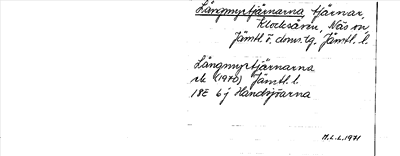 Långmyrtjärnarna tjärnar,
Klocksåsen, Näs sn,
Jämtl. ö. doms.tg. Jämtl. l.
Långmyrtjärnarna
rk (1970) Jämtl. l.
18E 6j Handsjöarna
M.L.L. 1971